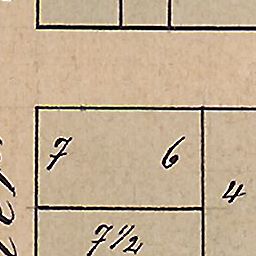 7 6
4
7½